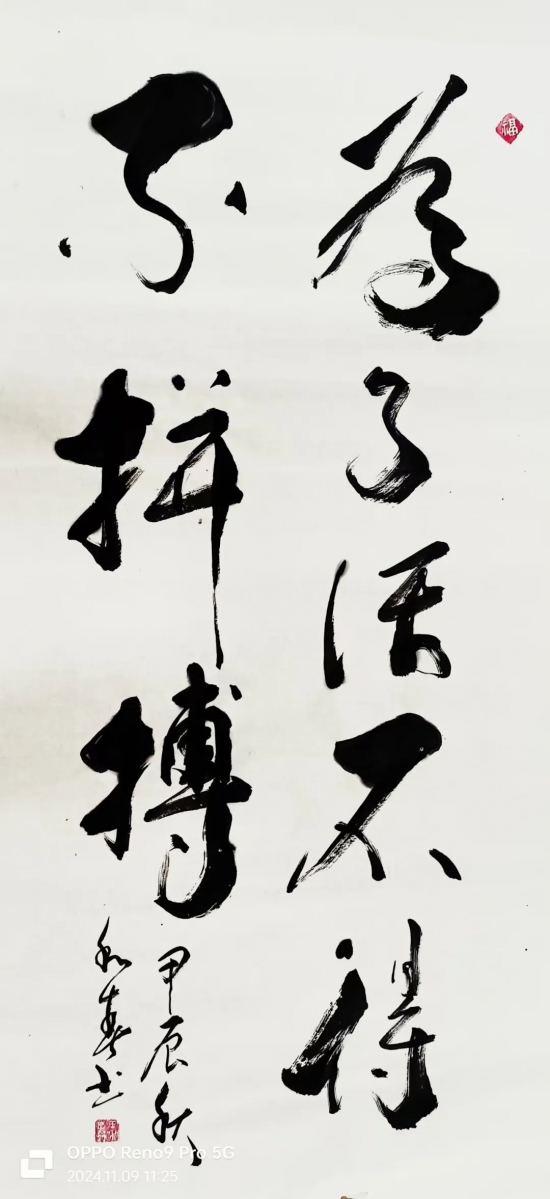 福
为了活不得
不拼搏
甲辰秋
和春书
OPPO Reno9 Pro 5G
2024.11.09 11:25